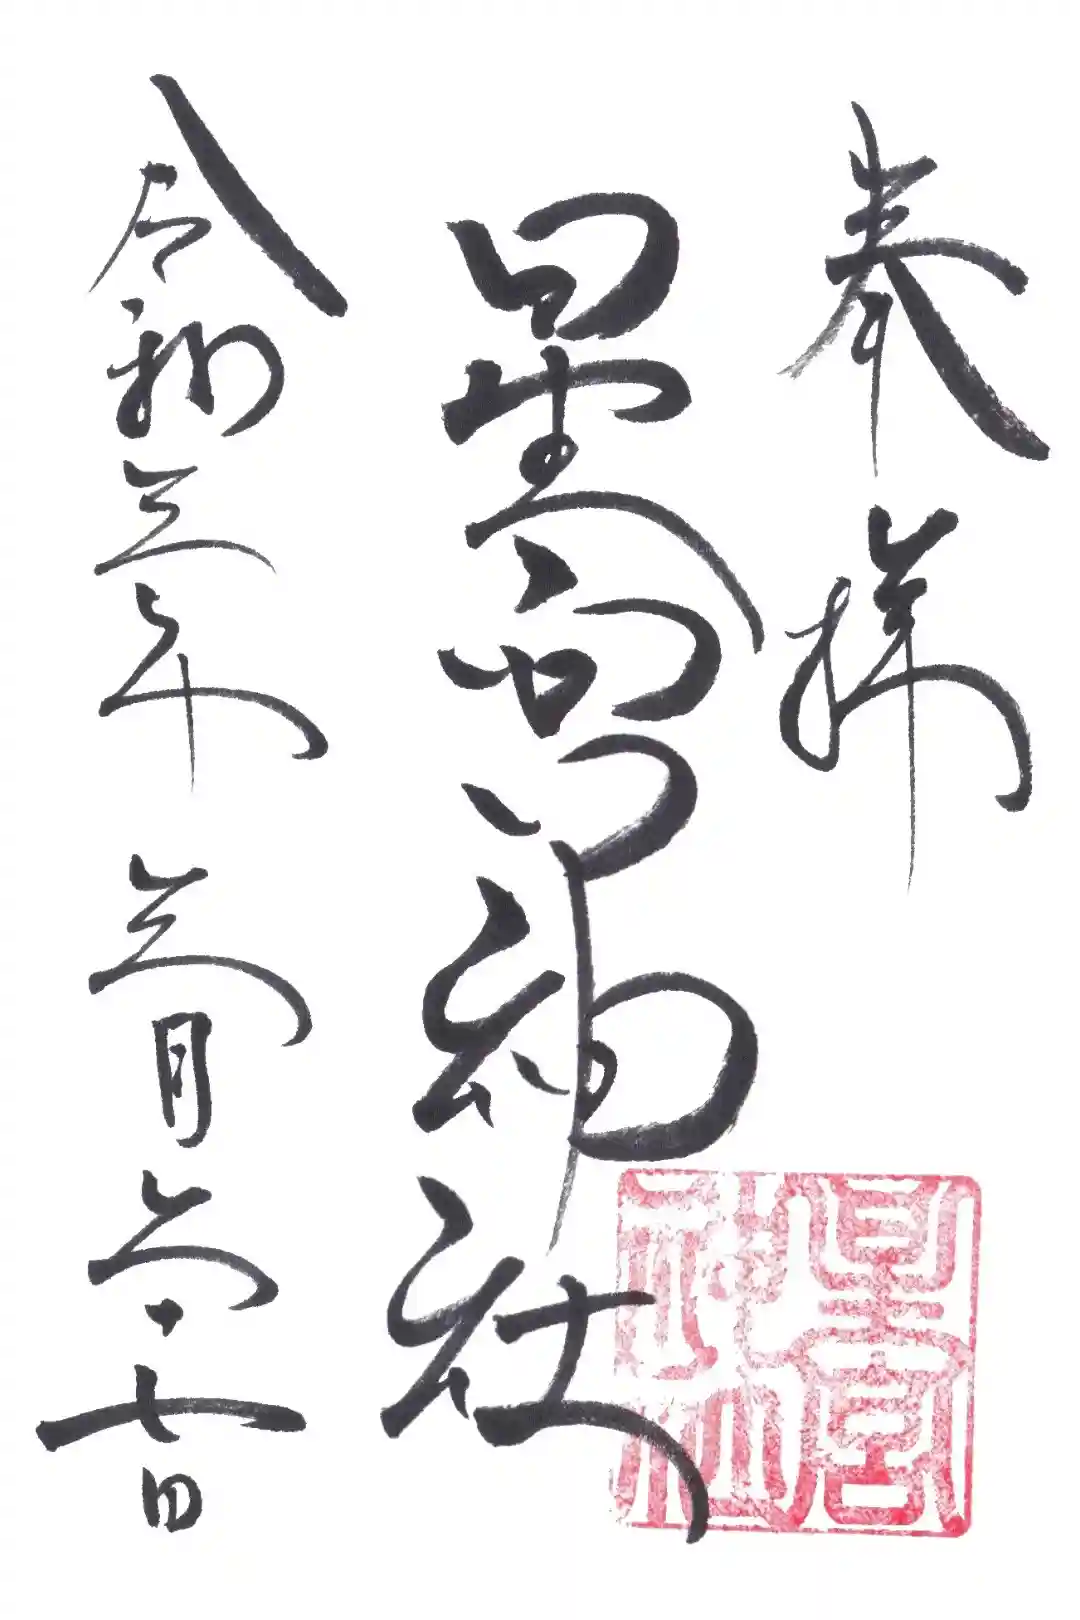 奉拝
星宮神社
令和三年 三月
星宮
神社